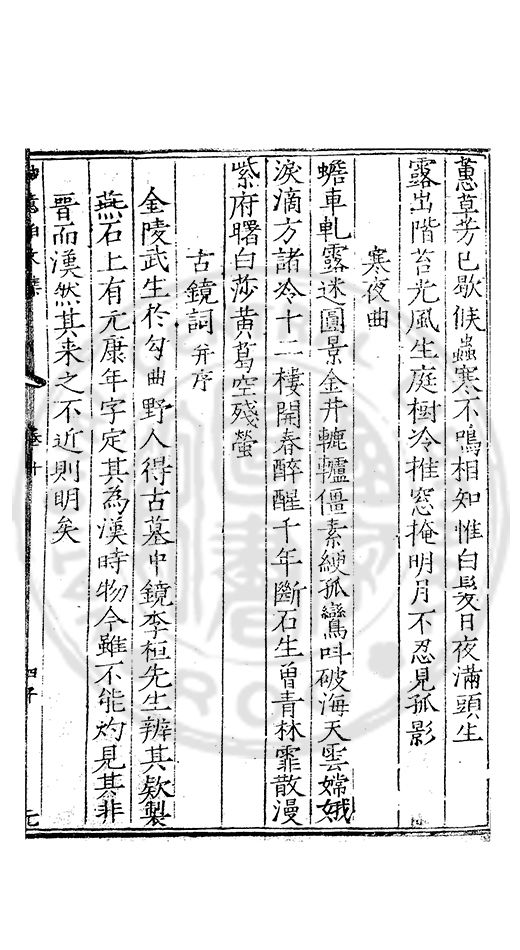 蕙草芳已歇候蟲寒不鳴相知惟白髮日夜滿頭生
露出階苔光風生庭樹冷推窓掩明月不忍見孤影
寒夜曲
蟾車軋露迷圓景金井轆轤僵素綆孤鸞呌破海天雲嫦娥
淚滴方諸冷十二樓開春醉醒千年斷石生曽青林霏散漫
紫府曙白莎黄葛空殘螢
古鏡詞并序
金陵武生於勾曲野人得古墓中鏡李桓先生辨其欵製
燕石上有元康年字定其為漢時物今雖不能灼見其非
晋而漢然其来之不近則明矣
卷十